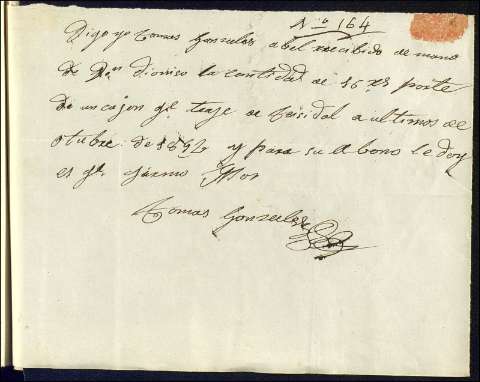 N.o 164
Digo yo Tomas Gonzalez abel recibido de mano
de D.n dionisio la cantidad de 16 rs porte
de un cajon qe. traje de a ultimos de
otubre de y para su abono le doy
es qe. firmo
Tomas Gonzalez